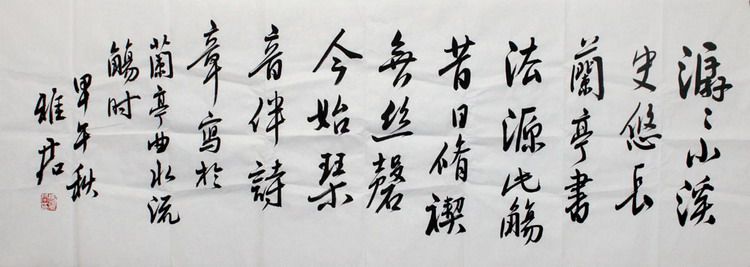 潺〻小溪
史悠長
蘭亭書
法源此觴
昔日脩禊
無丝磬
今始琴
音伴詩
章寫於
蘭亭曲水流
觴时
甲午秋
雅君